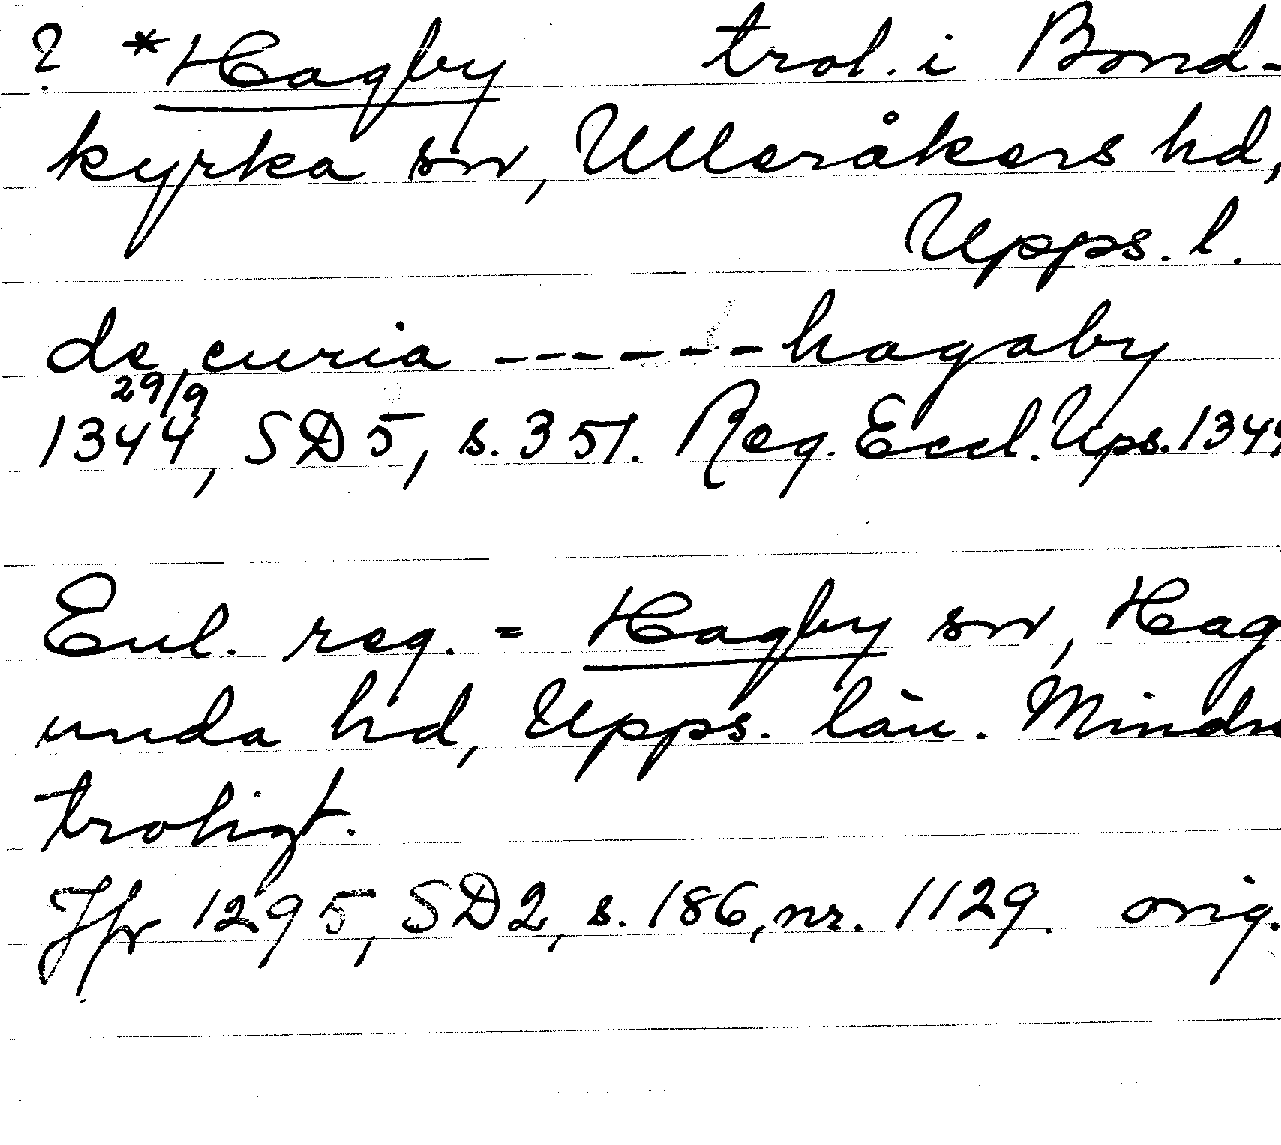 ? *Hagby trol. i Bond-
kyrka sn, Ulleråkers hd,
Upps. l.
de curia ------hagaby
29/9
1344, SD5, s. 351. Reg. Eccl. Ups. 1344
Enl. reg. = Hagby sn, Hag
unda hd, Upps. län. Mindre
troligt.
Jfr 1295, SD2, s. 186, nr. 1129. orig.